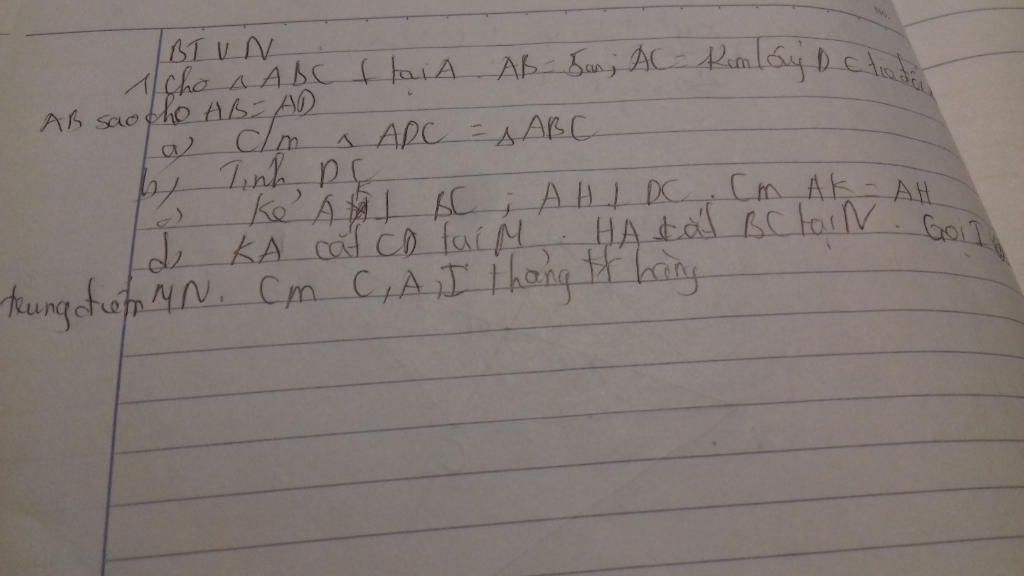 BTVN
1, Cho △ ABC ⊥ tại A. AB = 5cm; AC = 12cm lấy D ∈ tia đối
AB sao cho AB = AD
a, C/m △ ADC = △ ABC
b, Tính DC
c) Kẻ AK ⊥ BC; AH ⊥ DC. Cm AK = AH
d, KA cắt CD tại M. HA cắt BC tại N. Gọi I là
trung điểm MN. Cm C, A, I thẳng hàng